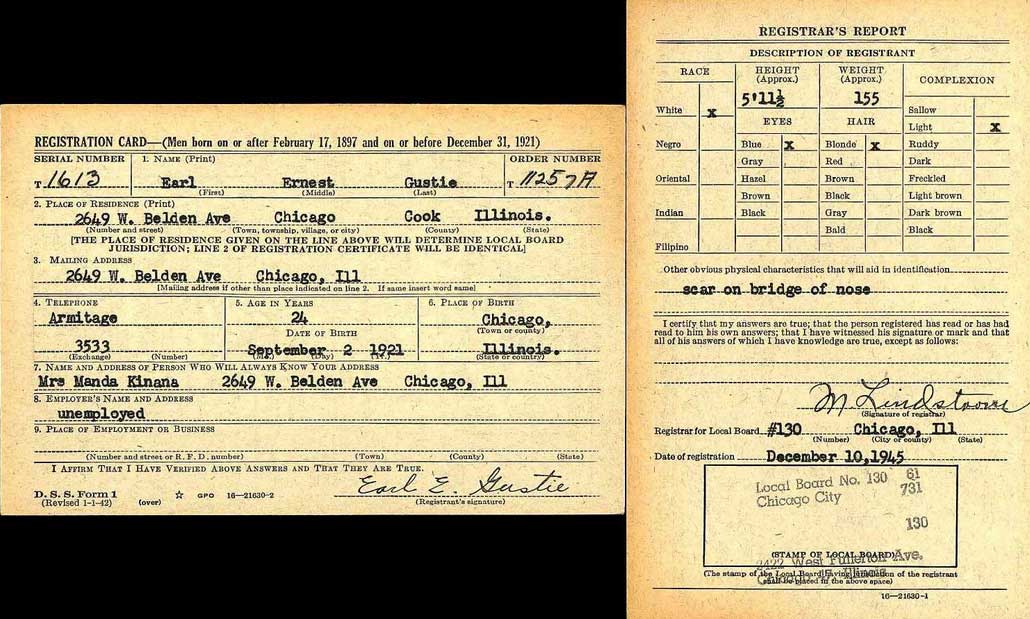 REGISTRATION CARD—(Men born on or after February 17, 1897 and on or before December 31, 1921)
SERIAL NUMBER 1. NAME (Print) ORDER NUMBER
T 1613 Earl Ernest Gustie T 11257A
(First) (Middle) (Last)
2. PLACE OF RESIDENCE (Print)
2649 W. Belden Ave Chicago Cook Illinois.
(Number and street) (Town, township, village, or city) (County) (State)
[THE PLACE OF RESIDENCE GIVEN ON THE LINE ABOVE WILL DETERMINE LOCAL BOARD
JURISDICTION; LINE 2 OF REGISTRATION CERTIFICATE WILL BE IDENTICAL]
3. MAILING ADDRESS
2649 W. Belden Ave Chicago, Ill
[Mailing address if other than place indicated on line 2. If same insert word same]
4. TELEPHONE 5. AGE IN YEARS 6. PLACE OF BIRTH
Armitage 24 Chicago,
DATE OF BIRTH (Town or county)
3533 September 2 1921 Illinois.
(Exchange) (Number) (Mo.) (Day) (Yr.) (State or country)
7. NAME AND ADDRESS OF PERSON WHO WILL ALWAYS KNOW YOUR ADDRESS
Mrs Manda Kinana 2649 W. Belden Ave Chicago, Ill
8. EMPLOYER'S NAME AND ADDRESS
unemployed
9. PLACE OF EMPLOYMENT OR BUSINESS
(Number and street or R. F. D. number) (Town) (County) (State)
I AFFIRM THAT I HAVE VERIFIED ABOVE ANSWERS AND THAT THEY ARE TRUE.
Earl E. Gustie
D. S. S. Form 1 (over) ☆ GPO 16—21630-2 (Registrant's signature)
(Revised 1-1-42)
REGISTRAR'S REPORT
DESCRIPTION OF REGISTRANT
RACE HEIGHT (Approx.) WEIGHT (Approx.) COMPLEXION
5'11½ 155
White x Sallow
EYES HAIR Light x
Negro Blue x Blonde x Ruddy
Gray Red Dark
Oriental Hazel Brown Freckled
Brown Black Light brown
Indian Black Gray Dark brown
Bald Black
Filipino
Other obvious physical characteristics that will aid in identification
scar on bridge of nose
I certify that my answers are true; that the person registered has read or has had
read to him his own answers; that I have witnessed his signature or mark and that
all of his answers of which I have knowledge are true, except as follows:
M. Lindstrom
(Signature of registrar)
Registrar for Local Board #130 Chicago, Ill
(Number) (City or county) (State)
Date of registration December 10,1945
Local Board No. 130 61
Chicago City 731
130
(STAMP OF LOCAL BOARD)
2422 West Fullerton Ave.
(The stamp of the Local Board having jurisdiction of the registrant
Chicago 47, Illinois
shall be placed in the above space)
16—21630-1